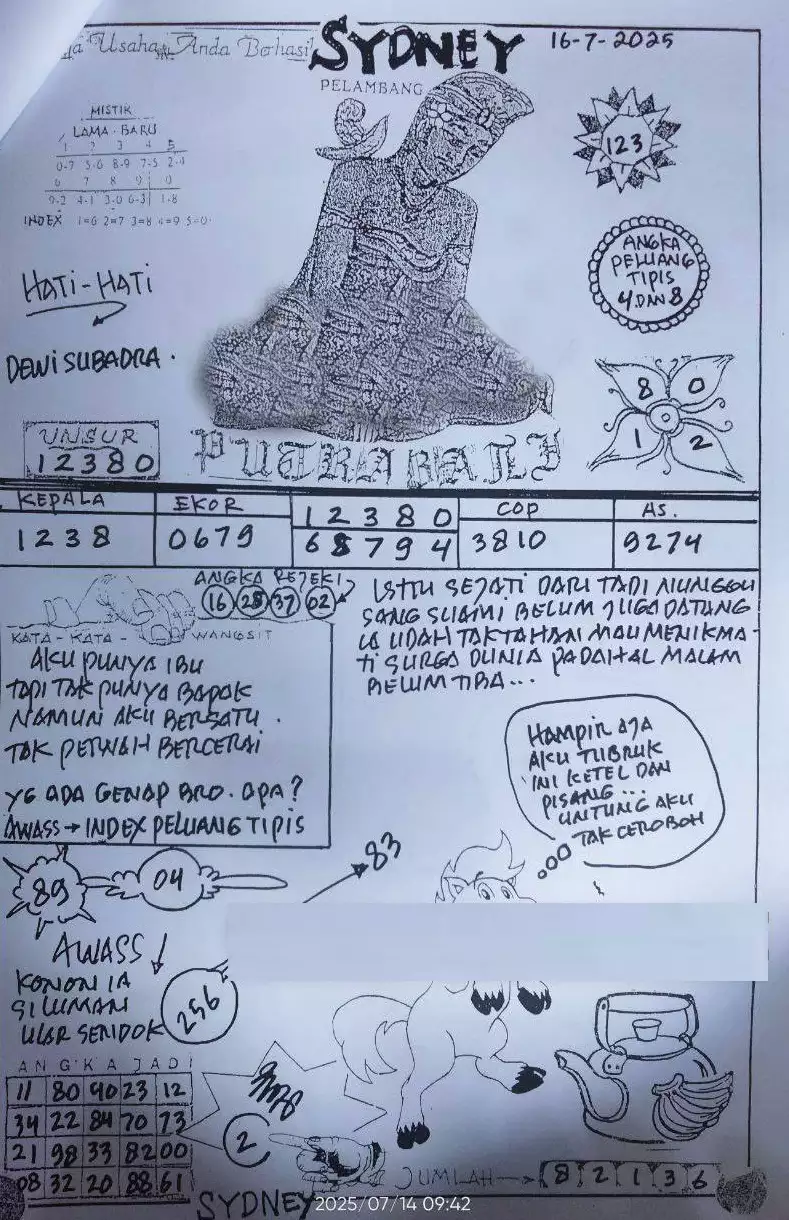 Usaha Anda Berhasil
SYDNEY
16-7-2025
PELAMBANG
MISTIK
LAMA - BARU
1 2 3 4 5
0-7 5-6 8-9 7-5 2-4
6 7 8 9 0
9-2 4-1 3-0 6-3 1-8
INDEX 1=6 2=7 3=8 4=9 5=0
123
ANGKA
PELUANG
TIPIS
4 DAN 8
HATI-HATI
DEWI SUBADRA.
8 0
1 2
UNSUR
12380
PUTRA BALI
KEPALA
1238
EKOR
0679
12380
68794
COP
3810
AS.
9274
ANGKA REJEKI
16 28 37 02
KATA - KATA - WANGSIT
AKU PUNYA IBU
TAPI TAK PUNYA BAPAK
NAMUN AKU BERSATU.
TAK PERNAH BERCERAI
YG ADA GENAP BRO. APA?
AWASS → INDEX PELUANG TIPIS
ISTRI SEJATI DARI TADI NUNGGU
SANG SUAMI BELUM JUGA DATANG
IA UDAH TAK TAHAN MAU MENIKMA-
TI SURGA DUNIA PADAHAL MALAM
BELUM TIBA...
HAMPIR AJA
AKU TUBRUK
INI KETEL DAN
PISANG...
UNTUNG AKU
TAK CEROBOH
83
89
04
AWASS
KONON IA
SILUMAN
ULAR SENDOK
256
ANGKA JADI
11 80 40 23 12
34 22 84 70 73
21 98 33 82 00
08 32 20 88 61
2
JUMLAH → 8 2 1 3 6
SYDNEY
2025/07/14 09:42